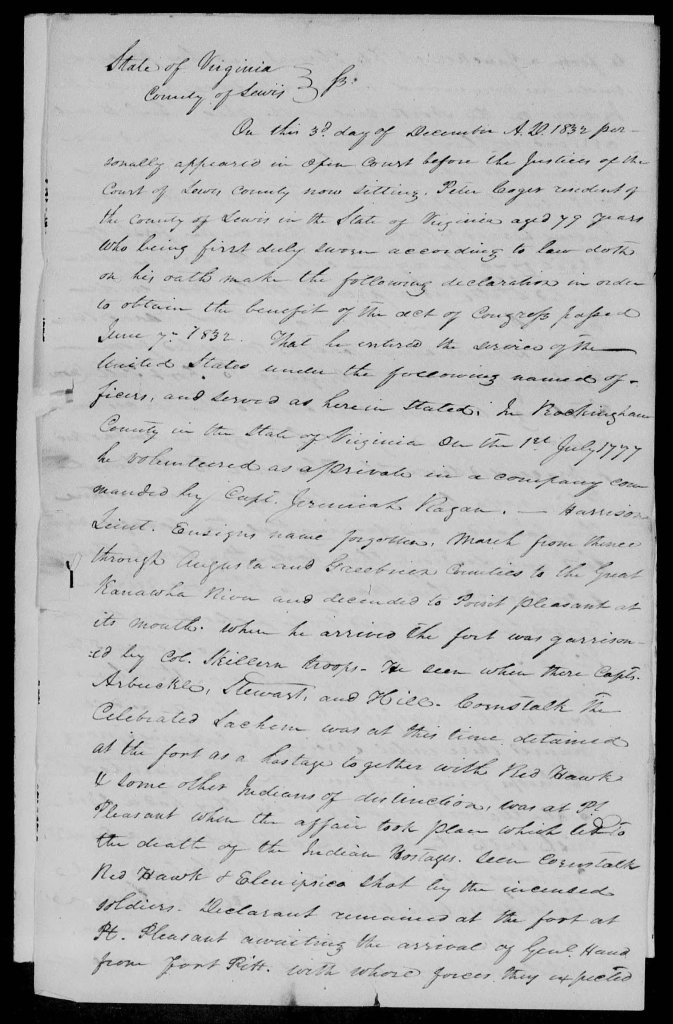 State of Virginia
County of Lewis } ss.
On this 3d. day of December A.D. 1832 per-
sonally appeared in open Court before the Justices of the
Court of Lewis County now sitting, Peter Coger resident of
the County of Lewis in the State of Virginia aged 79 years
who being first duly sworn according to law doth
on his oath make the following declaration in order
to obtain the benefit of the act of Congress passed
June 7th 1832. That he entered the service of the
United States under the following named of-
ficers, and served as herein stated, In Rockingham
County in the State of Virginia on the 1st July 1777
he volunteered as a private in a company com
manded by Capt. Jeremiah Ragan. — Harrison
Lieut. Ensigns name forgotten. March from thence
through Augusta and Greebrier Counties to the Great
Kanawha River and decended to Point Pleasant at
its mouth. When he arrived the fort was garrison-
ed by Col. Skillern troops. He seen when there Capts.
Arbuckle, Stewart, and Hill. Cornstalk The
Celebrated Sachem was at this time detained
at the fort as a hostage together with Red Hawk
& some other Indians of distinction, was at Pt.
Pleasant when the affair took place which led to
the death of the Indian Hostages. Seen Cornstalk
Red Hawk & Elenipsico shot by the incensed
soldiers. Declarant remained at the fort at
Pt. Pleasant awaiting the arrival of Genl. Hand
from Fort Pitt. with whose forces they expected